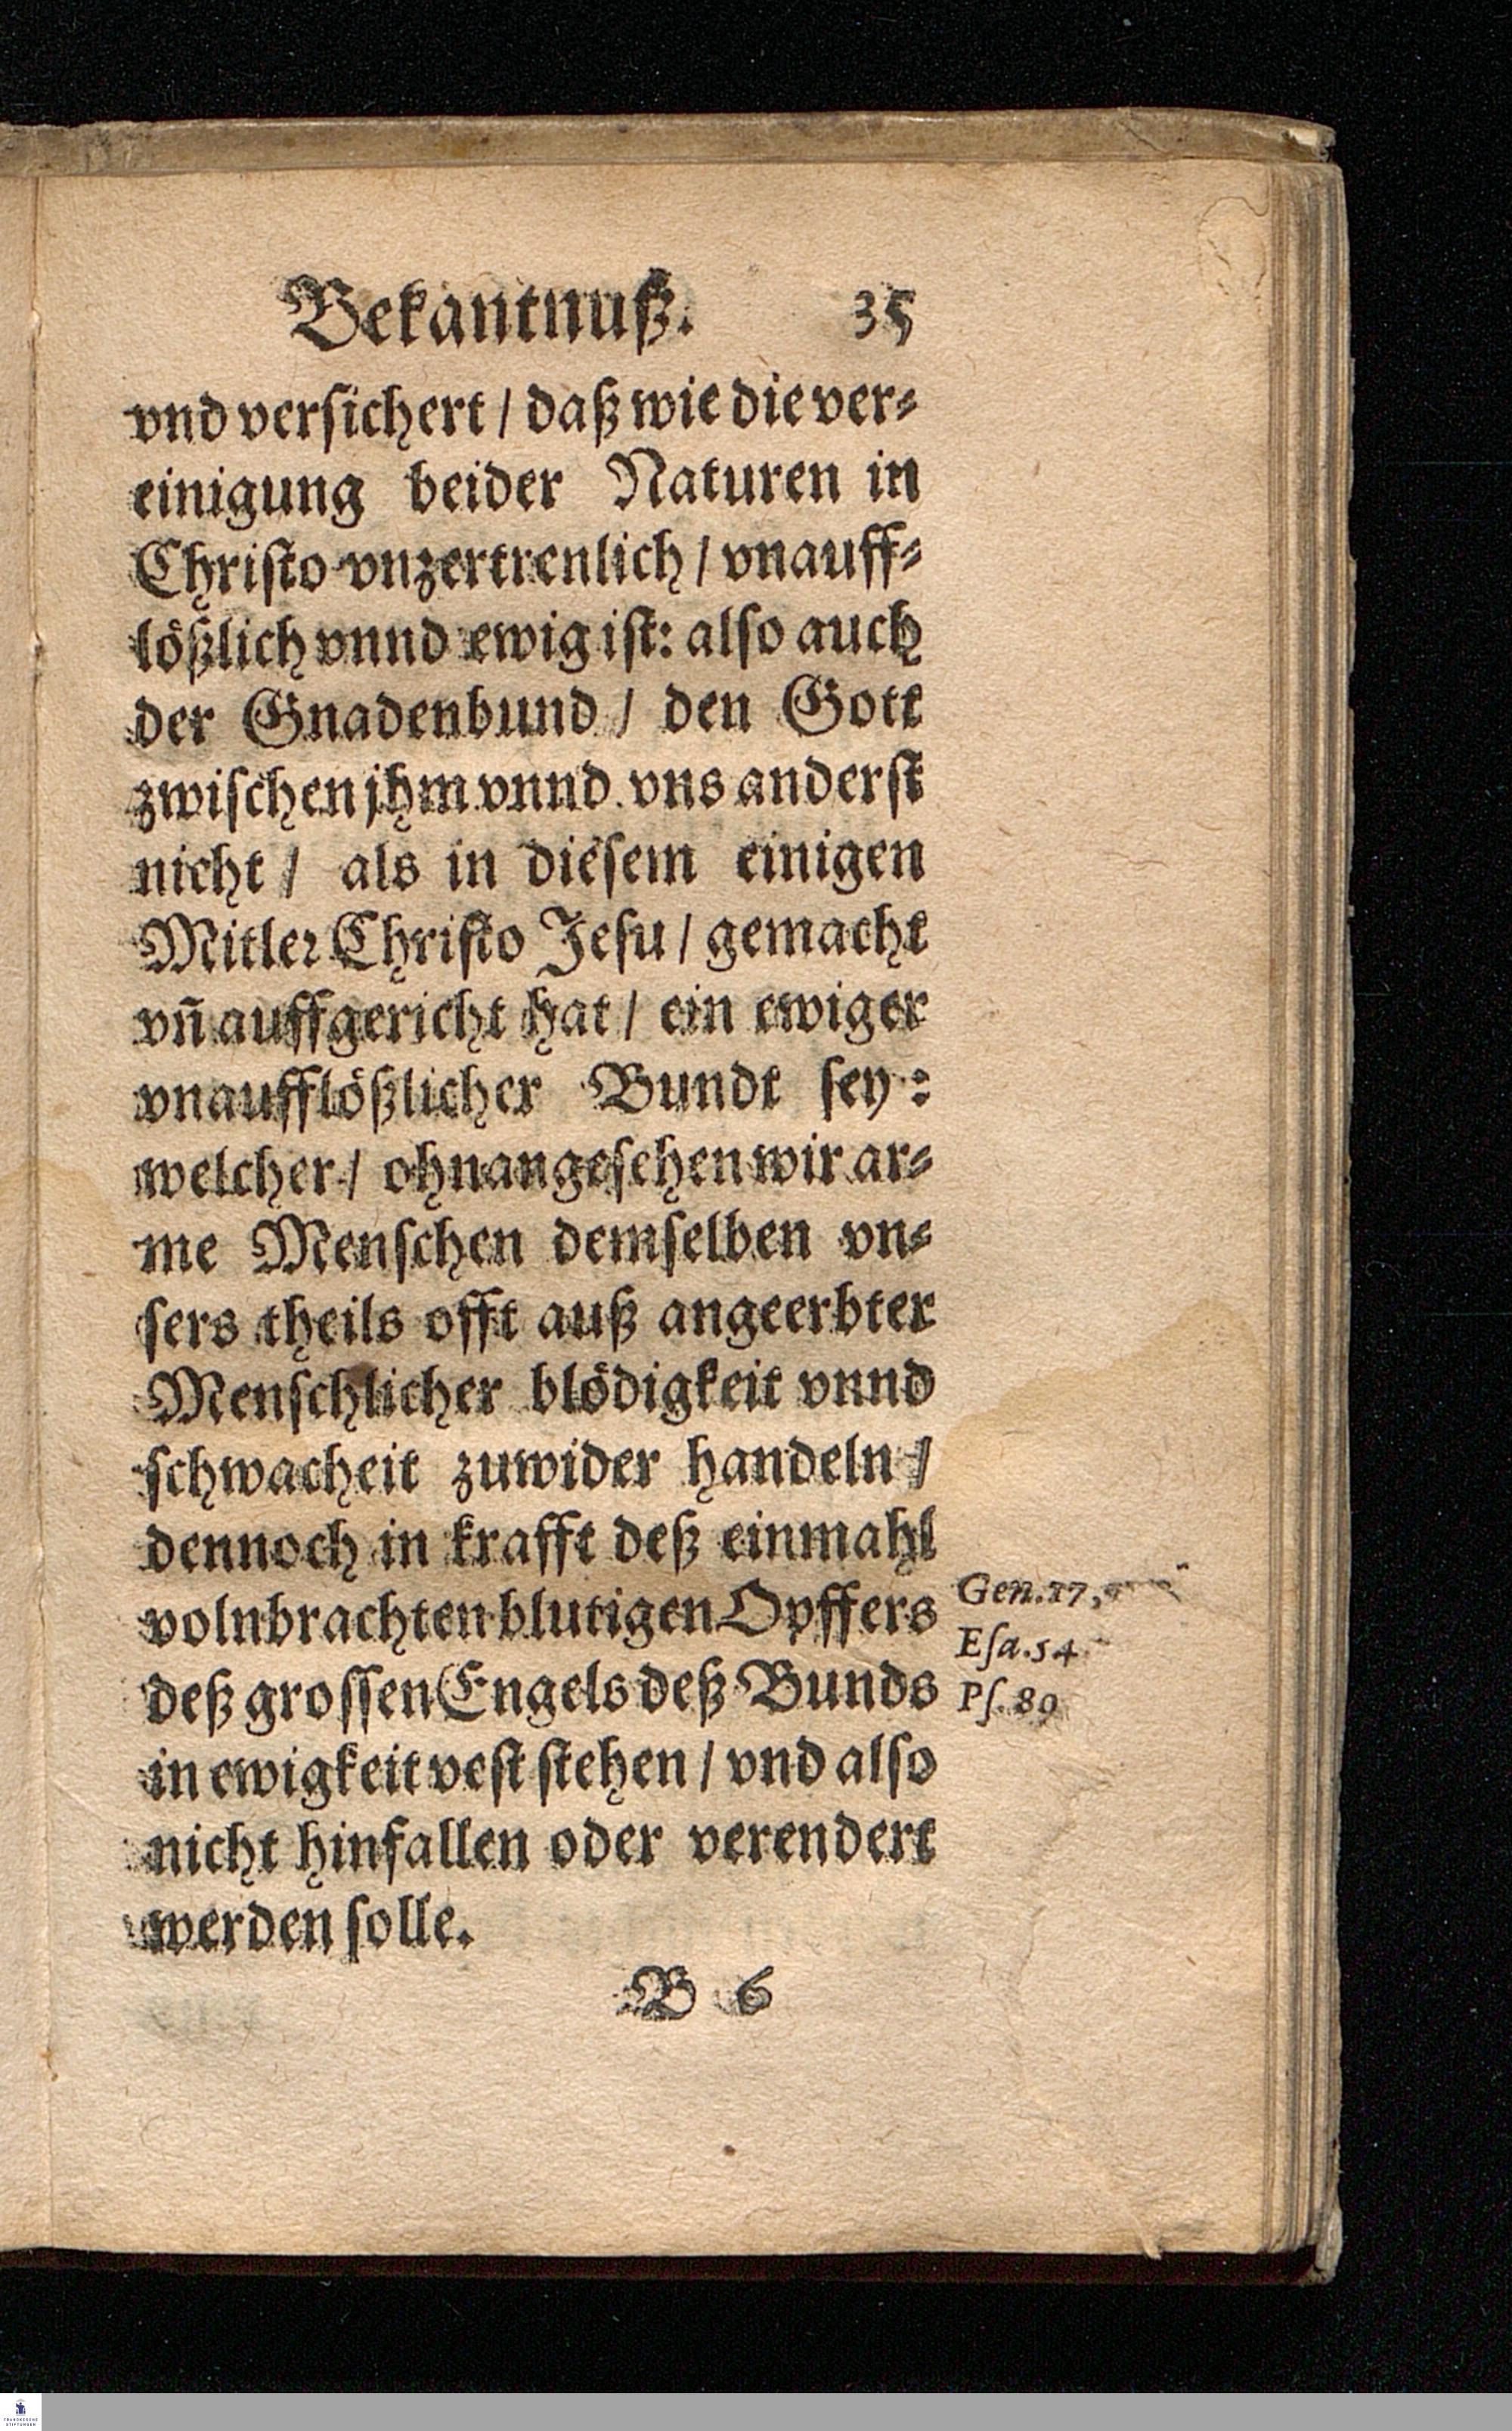 Bekantnuß. 35
vnd versichert / daß wie die ver⸗
einigung beider Naturen in
Christo vnzertrenlich / vnauff⸗
lößlich vnnd ewig ist: also auch
der Gnadenbund / den Gott
zwischen jhm vnnd vns anderst
nicht / als in diesem einigen
Mitler Christo Jesu / gemacht
vñ auffgericht hat / ein ewiger
vnaufflößlicher Bundt sey:
welcher / ohnangesehen wir ar⸗
me Menschen demselben vn⸗
sers theils offt auß angeerbter
Menschlicher blödigkeit vnnd
schwacheit zuwider handeln /
dennoch in krafft deß einmahl
volnbrachten blutigen Opffers
deß grossen Engels deß Bunds
in ewigkeit vest stehen / vnd also
nicht hinfallen oder verendert
werden solle.
Gen. 17,
Esa. 54
Ps. 89
B 6
FRANCKESCHE
STIFTUNGEN